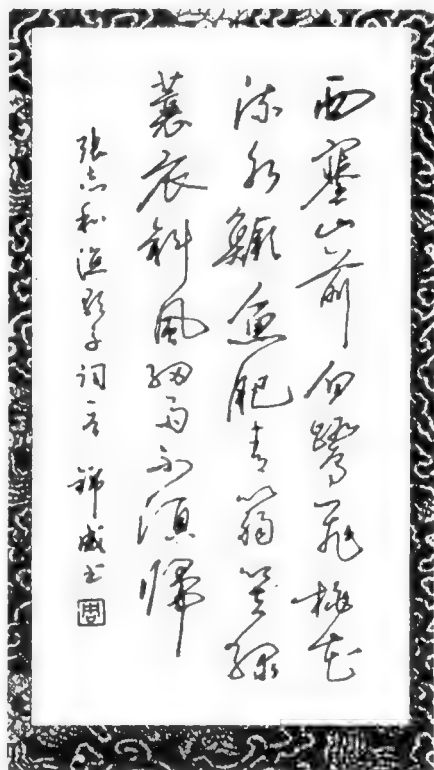 西塞山前白鷺飛桃花
流水鱖魚肥青篛笠綠
蓑衣斜風細雨不須歸
張志和漁歌子詞一首 錦威书
周